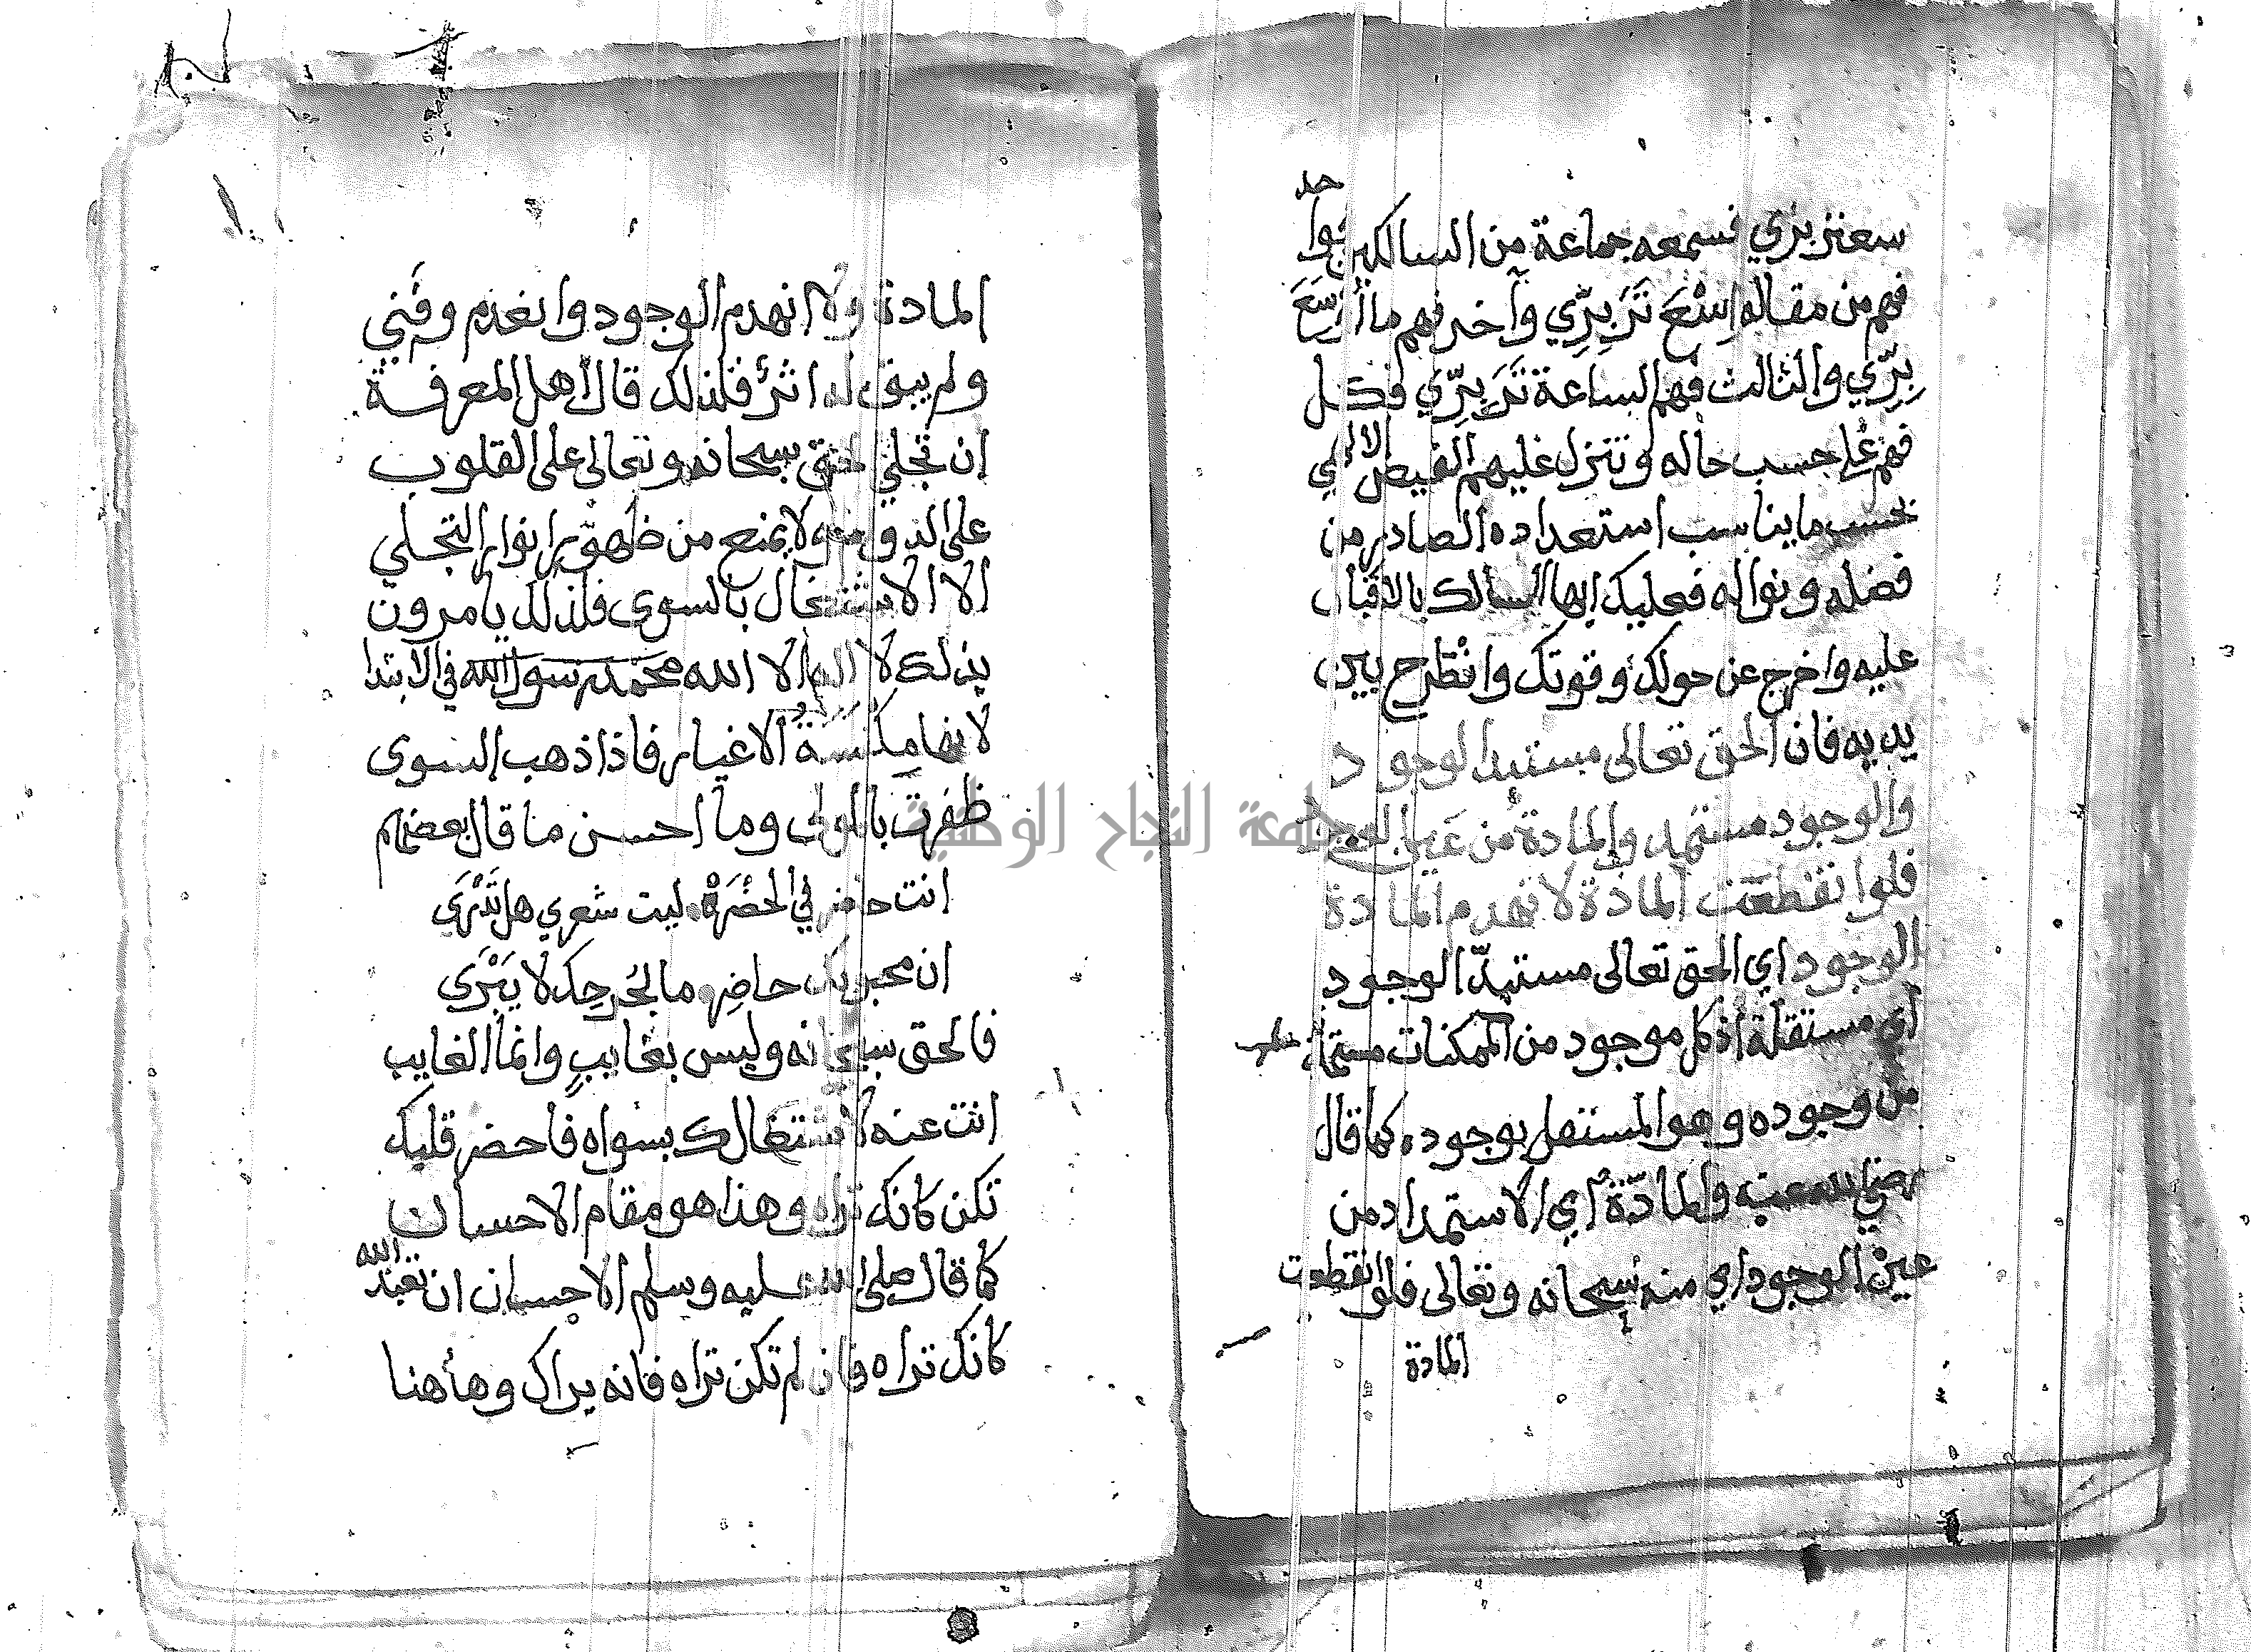 سعتر بري فسمعه جماعة من السالكين
فهم من مقاله اِسْعَ تَرَ بِرِّي وآخر فهم ما أوسع
بِرِّي والثالث فهم الساعة تَرَ بِرِّي فكل
فهم على حسب حاله وتنزل عليهم الفيض الالهي
بحسب ما يناسب استعداده الصادر من
فضله ونواله فعليك ايها السالك بالاقبال
عليه واخرج عن حولك وقوتك وانطرح بين
يديه فان الحق تعالى مستبد الوجود
والوجود مستمد والمادة من عين الوجود
فلو انقطعت المادة لانهدم المادة
الوجود اي الحق تعالى مستبدّ الوجود
أي مستقلة اذ كل موجود من الممكنات مستمد
من وجوده وهو المستقل بوجوده كما قال
رضي الله عنه والمادّة أي الاستمداد من
عين الوجود اي منه سبحانه وتعالى فلو انقطعت
المادة
المادة ولا انهدم الوجود وانعدم وفني
ولم يبق له اثر فلذلك قال أهل المعرفة
ان تجلي الحق سبحانه وتعالى على القلوب
على الدوام لا يمنع من ظهور انوار التجلي
الا الاشتغال بالسوى فلذلك يامرون
بذلك لا اله الا الله محمد رسول الله في الابتدا
لانها مكنسة الاغيار فاذا ذهب السوى
ظفرت بالمولى وما احسن ما قال بعضهم
انت حاضر في الحضرة ليت شعري هل تدري
ان محبوبك حاضر وما لجرحك لا يبري
فالحق سبحانه وليس بغايب وانما الغايب
انت عنه لاشتغالك بسواه فاحضر قلبك
تكن كانك تراه وهذا هو مقام الاحسان
كما قال صلى الله عليه وسلم الاحسان ان تعبد الله
كانك تراه فان لم تكن تراه فانه يراك وهأهنا
جامعة النجاح الوطنية